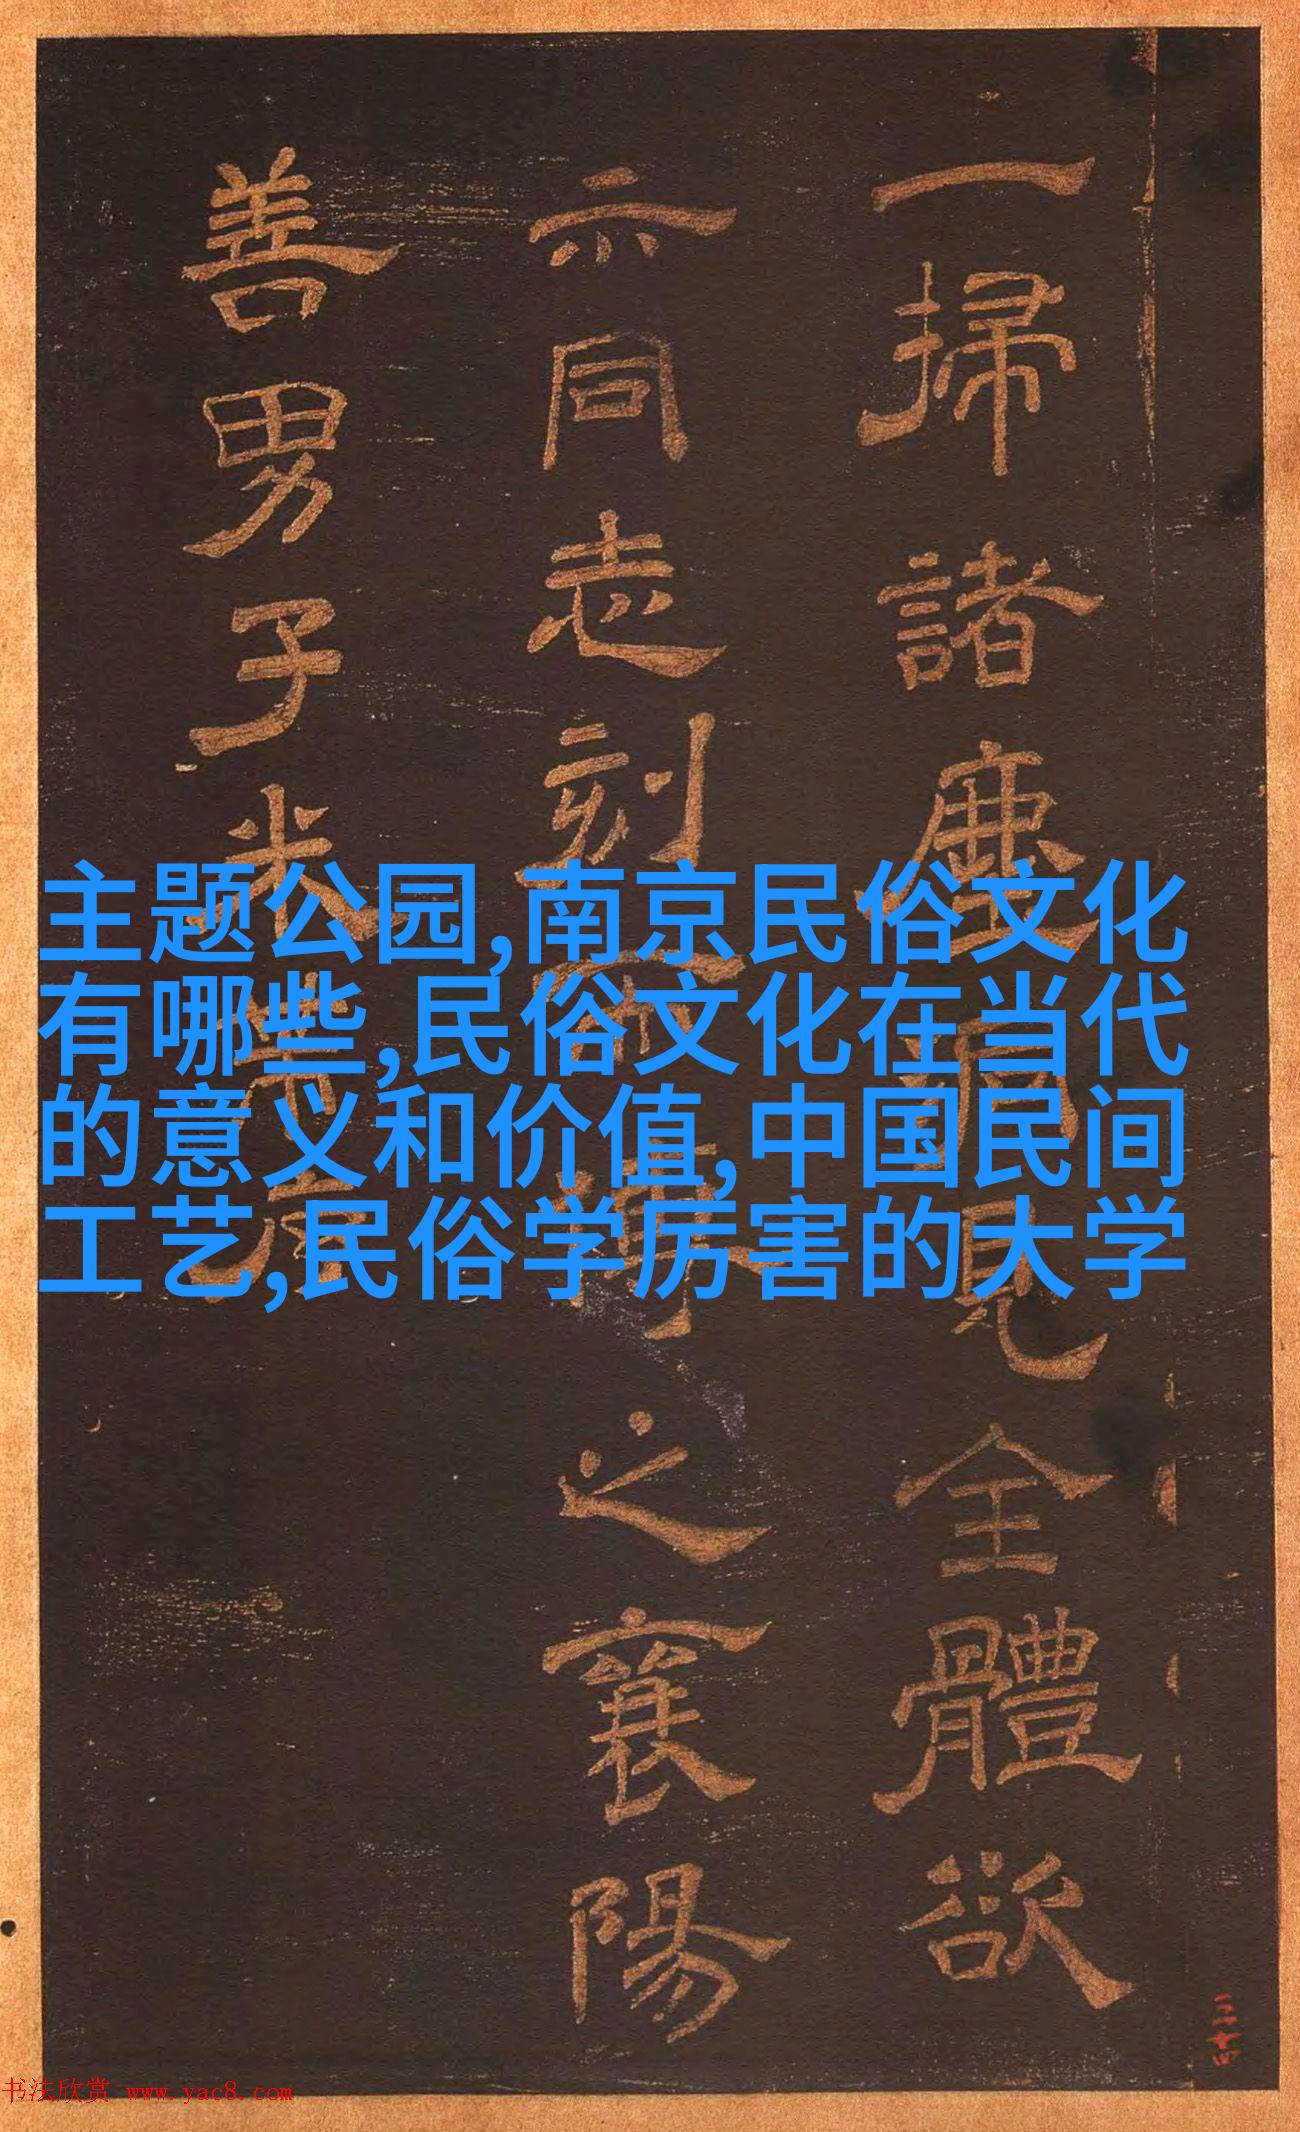 一掃諸塵頓見全體欲
示同志刻而傳之襄陽
善男子米芾言
主题公园,南京民俗文化
有哪些,民俗文化在当代
的意义和价值,中国民间
工艺,民俗学厉害的大学
三十四
书法欣赏 www.yac8.com